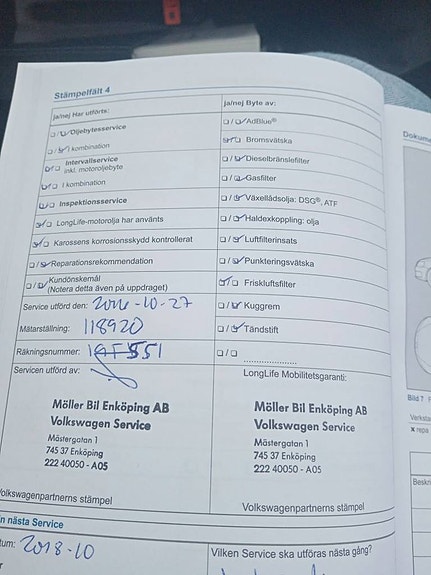 Stämpelfält 4
ja/nej Har utförts:
Oljebytesservice
I kombination
Intervallservice
inkl. motoroljebyte
I kombination
Inspektionsservice
LongLife-motorolja har använts
Karossens korrosionsskydd kontrollerat
Reparationsrekommendation
Kundönskemål
(Notera detta även på uppdraget)
Service utförd den: 2016-10-27
Mätarställning: 118920
Räkningsnummer:
Servicen utförd av:
Möller Bil Enköping AB
Volkswagen Service
Mästergatan 1
745 37 Enköping
222 40050 - A05
Volkswagenpartnerns stämpel
ja/nej Byte av:
AdBlue®
Bromsvätska
Dieselbränslefilter
Gasfilter
Växellådsolja: DSG®, ATF
Haldexkoppling: olja
Luftfilterinsats
Punkteringsvätska
Friskluftsfilter
Kuggrem
Tändstift
LongLife Mobilitetsgaranti:
Möller Bil Enköping AB
Volkswagen Service
Mästergatan 1
745 37 Enköping
222 40050 - A05
Volkswagenpartnerns stämpel
n nästa Service
tum: 2018-10
Vilken Service ska utföras nästa gång?
Dokume
Bild 7
Verksta
x repa
Beskri